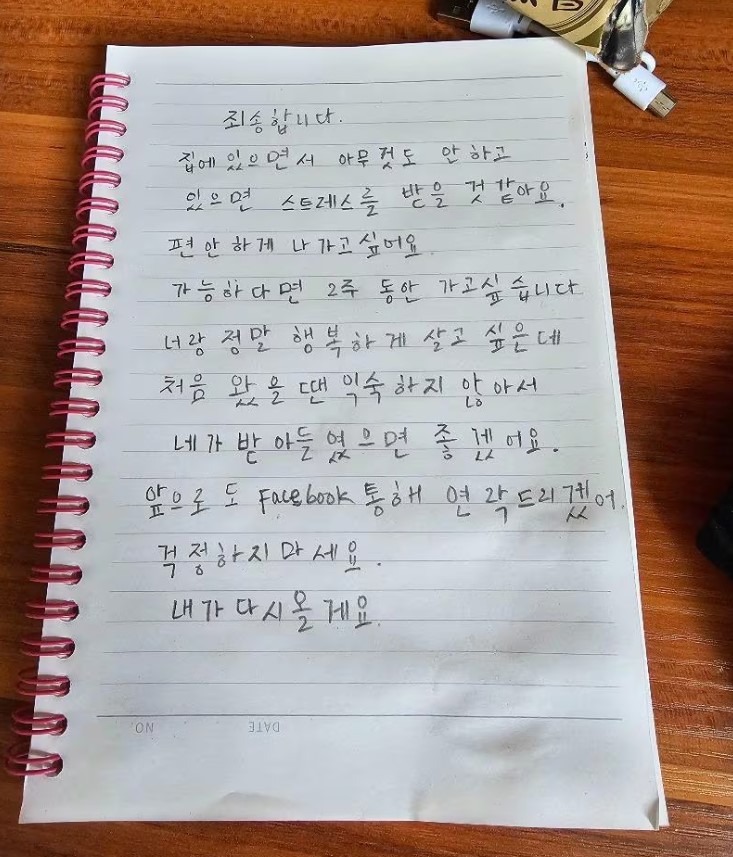 죄송합니다.
집에 있으면서 아무것도 안 하고
있으면 스트레스를 받을 것 같아요.
편안하게 나가고싶어요
가능하다면 2주 동안 가고싶습니다
너랑 정말 행복하게 살고 싶은데
처음 왔을 땐 익숙하지 않아서
네가 받아들였으면 좋겠어요.
앞으로도 Facebook 통해 연락드리겠어.
걱정하지마세요.
내가다시올게요.
NO.
DATE